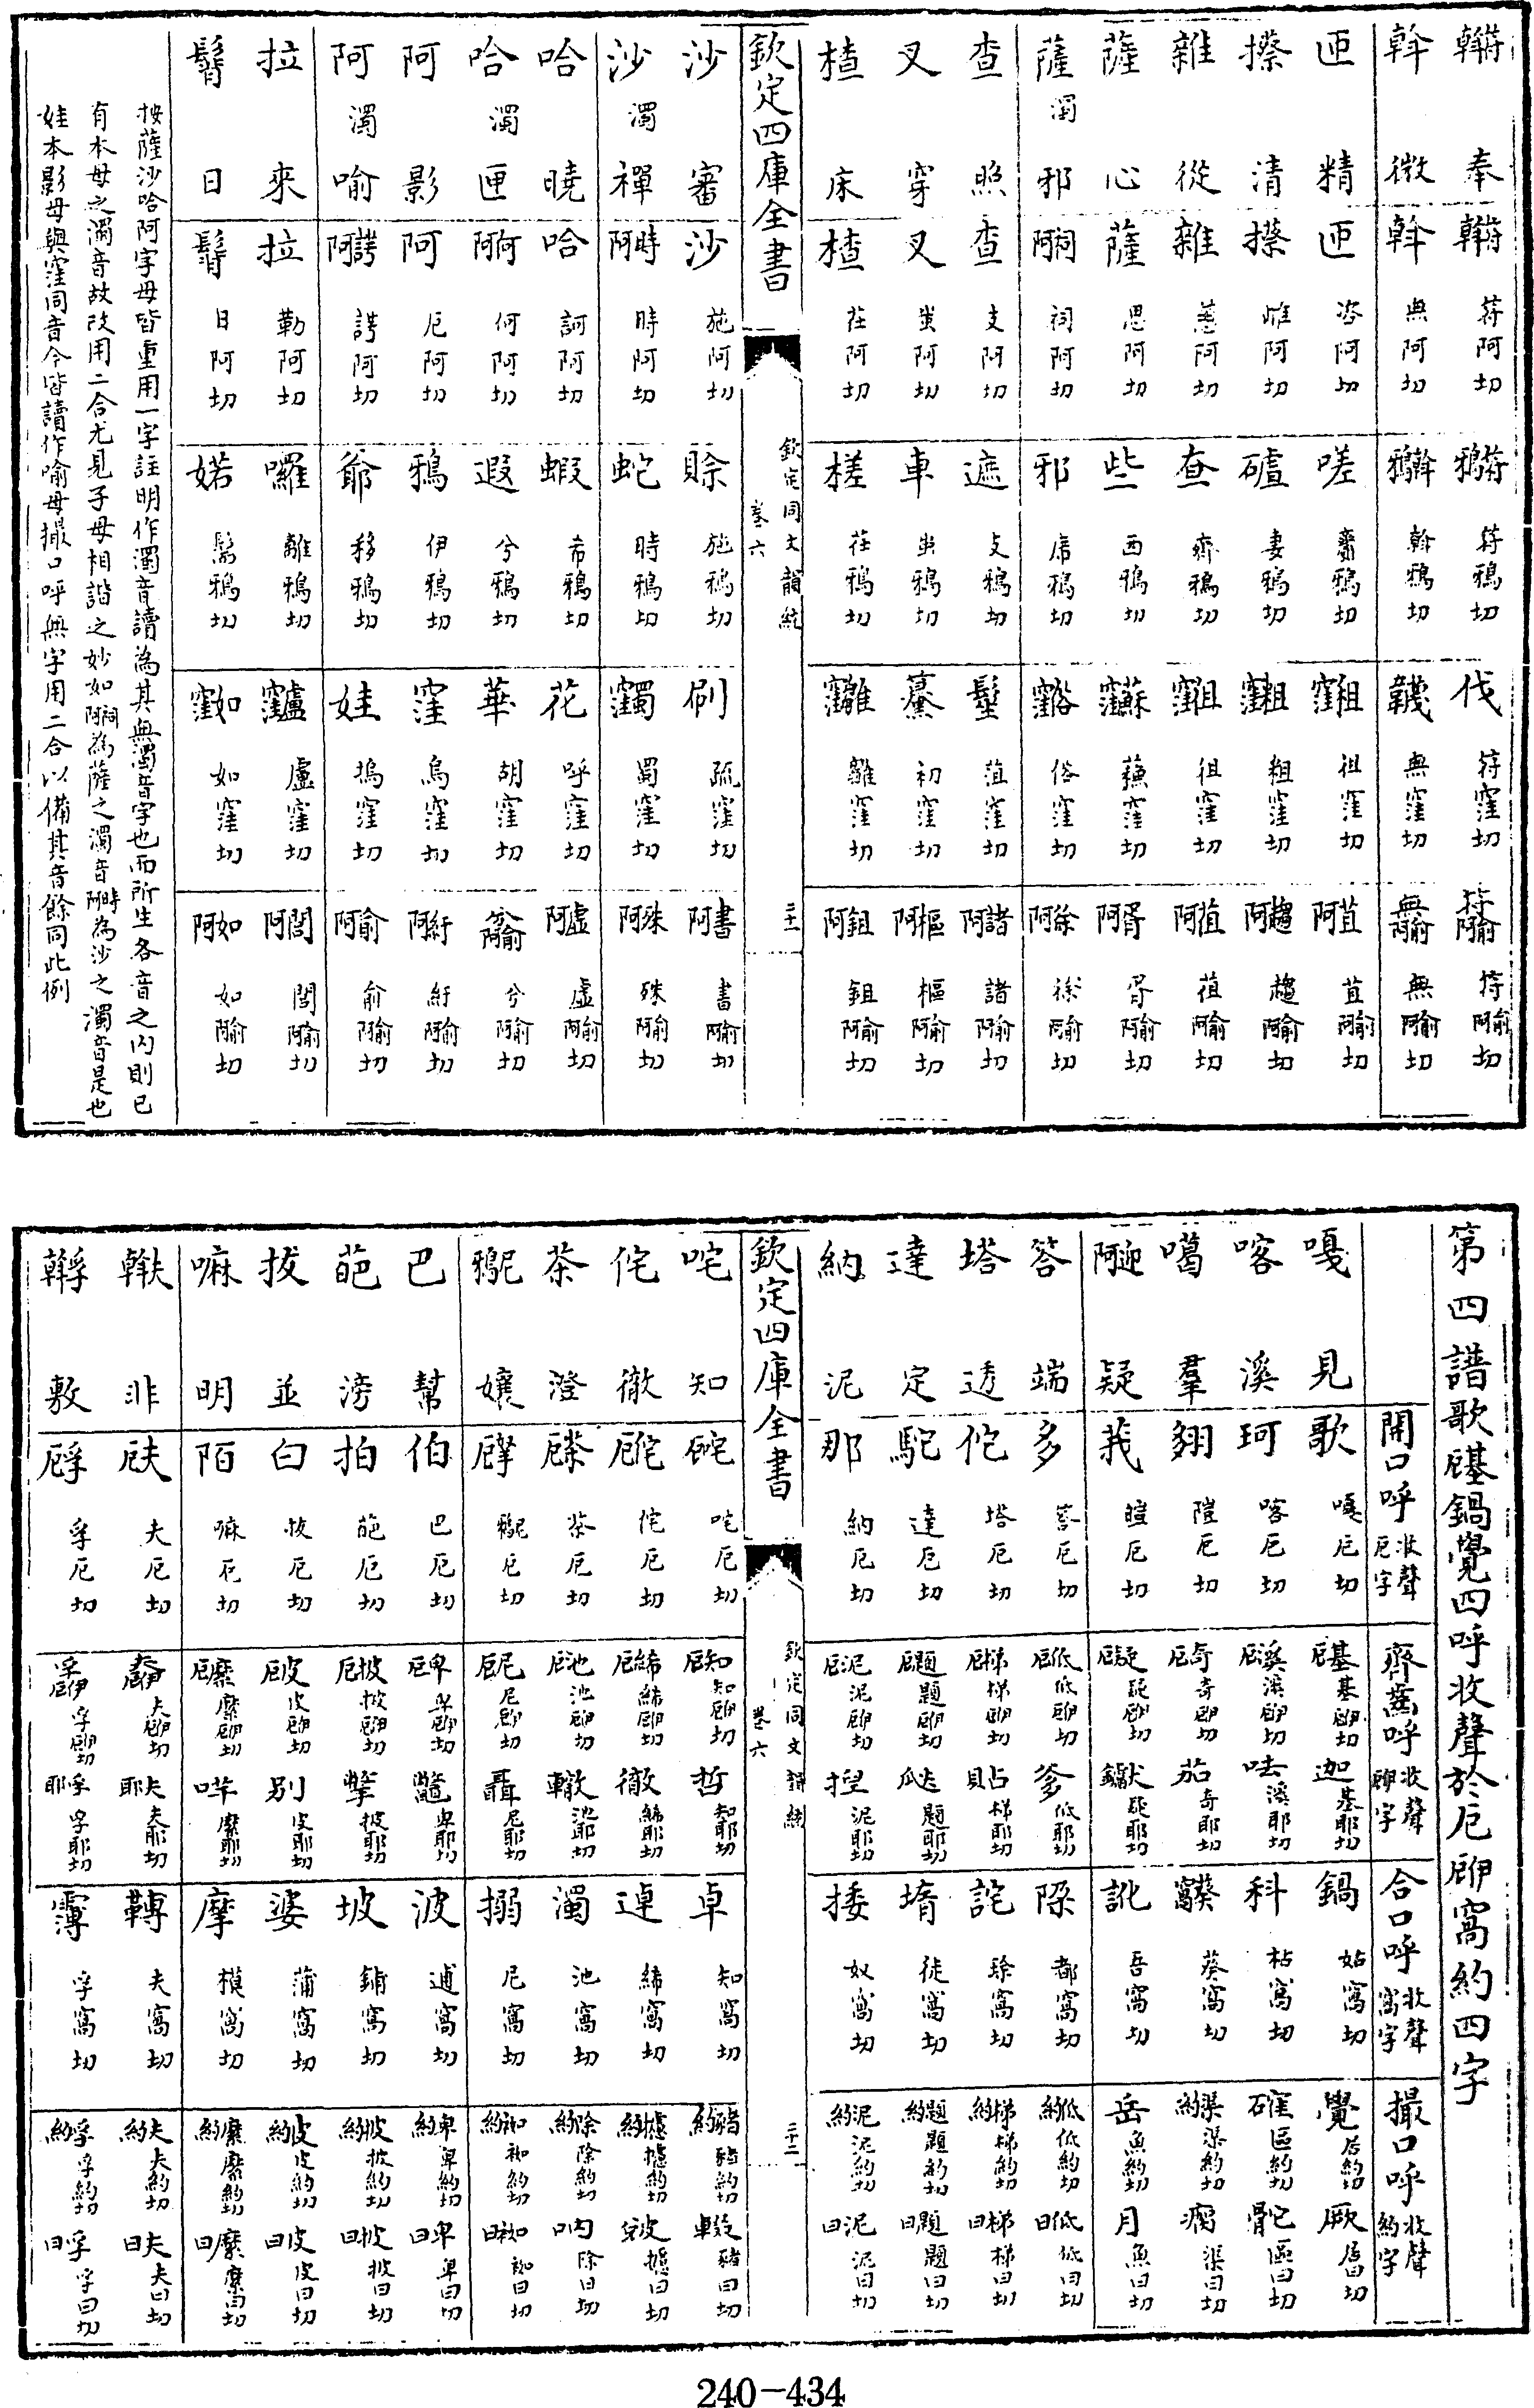 奉 符阿切 符鴉切 伐 符窪切 符阿喻 符阿喻切
斡 微 斡 無阿切 斡鴉 斡鴉切 韈 無窪切 無阿喻 無阿喻切
匝 精 匝 咨阿切 嗟 齎鴉切 租窪 租窪切 苴阿 苴阿喻切
攃 清 攃 雌阿切 磋 妻鴉切 粗窪 粗窪切 趨阿 趨阿喻切
雜 從 雜 慈阿切 查 齊鴉切 徂窪 徂窪切 苴阿 苴阿喻切
薩 心 薩 思阿切 些 西鴉切 蘇窪 蘇窪切 胥阿 胥阿喻切
薩 濁 邪 祠阿 祠阿切 邪 席鴉切 俗窪 俗窪切 徐阿 徐阿喻切
查 照 查 支阿切 遮 支鴉切 髽 菹窪切 諸阿 諸阿喻切
叉 穿 叉 蚩阿切 車 蚩鴉切 初窪切 樞阿 樞阿喻切
楂 床 楂 茬阿切 槎 茬鴉切 雛窪 雛窪切 鉏阿 鉏阿喻切
欽定四庫全書 欽定同文韻統 卷六 三十一
沙 審 沙 施阿切 賒 施鴉切 刷 疏窪切 書阿 書阿喻切
沙 濁 禪 時阿 時阿切 蛇 時鴉切 蜀窪 蜀窪切 殊阿 殊阿喻切
哈 曉 哈 訶阿切 蝦 希鴉切 花 呼窪切 虛阿 虛阿喻切
哈 濁 匣 何阿 何阿切 遐 兮鴉切 華 胡窪切 兮阿喻 兮阿喻切
阿 影 阿 厄阿切 鴉 伊鴉切 窪 烏窪切 紆阿 紆阿喻切
阿 濁 喻 諤阿 諤阿切 爺 移鴉切 娃 塢窪切 喻阿 俞阿喻切
拉 來 拉 勒阿切 囉 離鴉切 盧窪 盧窪切 閭阿 閭阿喻切
髯 日 髯 日阿切 婼 髯鴉切 如窪 如窪切 如阿 如阿喻切
按薩沙哈阿字母皆重用一字註明作濁音讀為其無濁音字也而所生各音之内則已
有本母之濁音故改用二合尤見子母相諧之妙如祠阿為薩之濁音時阿為沙之濁音是也
娃本影母與窪同音今皆讀作喻母撮口呼無字用二合以備其音餘同此例
第四譜歌基厄鍋覺四呼收聲於厄伊厄窩約四字
開口呼 收聲厄字 齊齒呼 收聲伊厄字 合口呼 收聲窩字 撮口呼 收聲約字
嘎 見 歌 嘎厄切 基厄 基伊厄切 迦 基耶切 鍋 姑窩切 覺 居約切 厥 居曰切
喀 溪 珂 喀厄切 溪厄 溪伊厄切 呿 溪耶切 科 枯窩切 確 區約切 區曰切
噶 羣 翗 噶厄切 奇厄 奇伊厄切 茄 奇耶切 葵窩 葵窩切 渠約 渠約切 瘸 渠曰切
迎阿 疑 莪 厄切 疑厄 疑伊厄切 疑耶切 訛 吾窩切 岳 魚約切 月 魚曰切
答 端 多 答厄切 低厄 低伊厄切 爹 低耶切 都窩切 低約 低約切 低曰 低曰切
塔 透 佗 塔厄切 梯厄 梯伊厄切 貼 梯耶切 詫 窩切 梯約 梯約切 梯曰 梯曰切
達 定 駝 達厄切 題厄 題伊厄切 題耶切 墮 徒窩切 題約 題約切 題曰 題曰切
納 泥 那 納厄切 泥厄 泥伊厄切 捏 泥耶切 捼 奴窩切 泥約 泥約切 泥曰 泥曰切
欽定四庫全書 欽定同文韻統 卷六 三十二
咤 知 咤厄切 知厄 知伊厄切 哲 知耶切 卓 知窩切 豬約 豬約切 輟 豬曰切
侘 徹 侘厄 侘厄切 絺厄 絺伊厄切 徹 絺耶切 逴 絺窩切 攄約 攄約切 攄曰切
茶 澄 茶厄 茶厄切 池厄 池伊厄切 轍 池耶切 濁 池窩切 除約 除約切 吶 除曰切
尼鴉 孃 厄切 尼厄 尼伊厄切 聶 尼耶切 搦 尼窩切 袽約 袽約切 袽曰 袽曰切
巴 幫 伯 巴厄切 卑厄 卑伊厄切 鼈 卑耶切 波 逋窩切 卑約 卑約切 卑曰 卑曰切
葩 滂 拍 葩厄切 披厄 披伊厄切 撆 披耶切 坡 鋪窩切 披約 披約切 披曰 披曰切
拔 並 白 拔厄切 皮厄 皮伊厄切 別 皮耶切 婆 蒲窩切 皮約 皮約切 皮曰 皮曰切
嘛 明 陌 嘛厄切 糜厄 糜伊厄切 哶 糜耶切 摩 模窩切 糜約 糜約切 糜曰 糜曰切
非 夫厄 夫厄切 夫伊厄 夫伊厄切 夫耶 夫耶切 轉 夫窩切 夫約 夫約切 夫曰 夫曰切
敷 孚厄 孚厄切 孚伊厄 孚伊厄切 孚耶 孚耶切 孚窩切 孚約 孚約切 孚曰 孚曰切
240-434